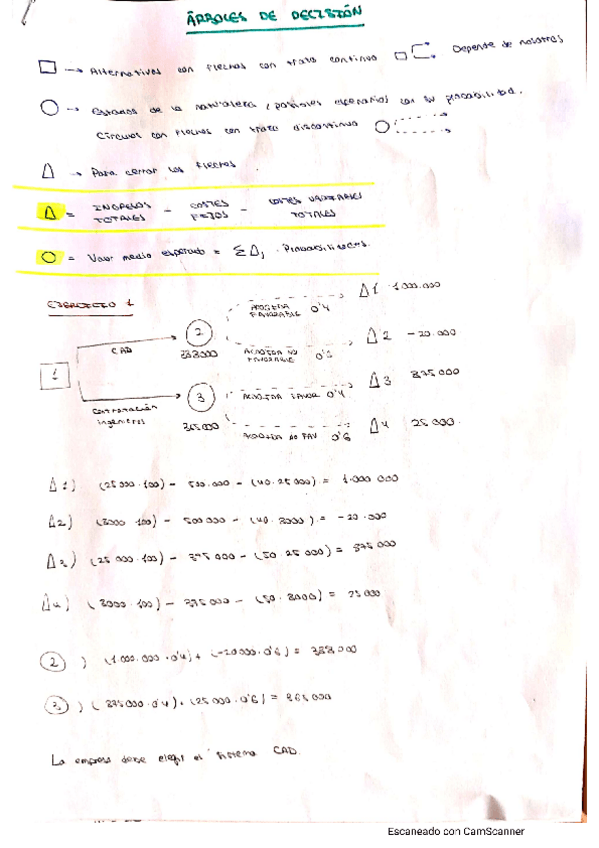 ÁRBOLES DE DECISIÓN
→ Alternativas con flechas con trazo continuo Depende de nosotros
→ Estados de la naturaleza / posibles escenarios con su probabilidad.
Círculos con flechas con trazo discontinuo
→ Para cerrar las flechas
Δ = INGRESOS TOTALES - COSTES FIJOS - COSTES VARIABLES TOTALES
O = Valor medio esperado = Σ Δj · Probabilidades.
EJERCICIO 1
1
CAD
2
388000
ACOGIDA FAVORABLE 0'4
Δ1 1.000.000
ACOGIDA NO FAVORABLE 0'6
Δ2 -20.000
Contratación ingenieros
3
365000
ACOGIDA FAVOR 0'4
Δ3 875000
ACOGIDA NO FAV 0'6
Δ4 25000
Δ1) (25000·100) - 500.000 - (40·25000) = 1.000 000
Δ2) (8000·100) - 500000 - (40·8000) = -20.000
(25 000·100) - 375000 - (50·25 000) = 875000
Δ4) (8000·100) - 375000 - (50·8000) = 25000
2) (1.000.000·0'4) + (-20000·0'6) = 388000
3) (875000·0'4) + (25000·0'6) = 365000
La empresa debe elegir el sistema CAD.
Escaneado con CamScanner